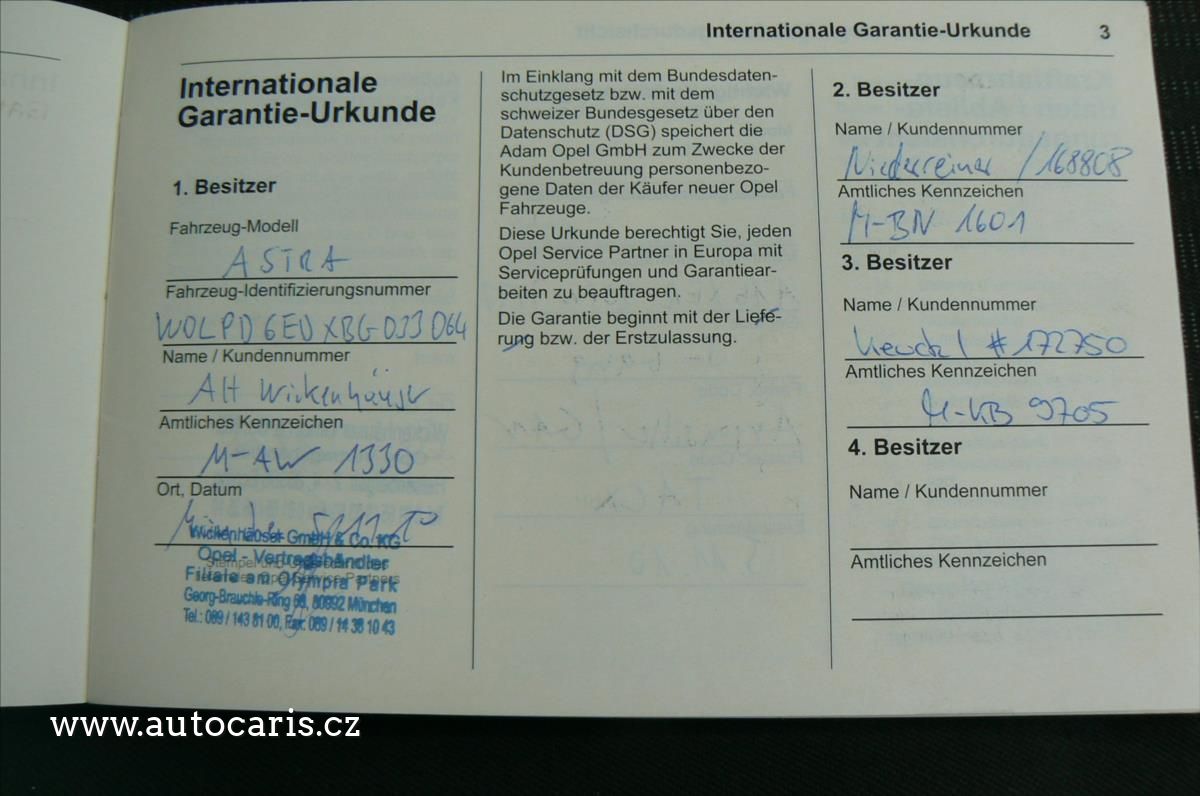 Internationale Garantie-Urkunde 3
Internationale
Garantie-Urkunde
1. Besitzer
Fahrzeug-Modell
ASTRA
Fahrzeug-Identifizierungsnummer
W0LPD6EUXBG033064
Name / Kundennummer
AH Wickenhäuser
Amtliches Kennzeichen
M-AW 1330
Ort, Datum
Wickenhäuser GmbH & Co. KG
Opel - Vertragshändler
Filiale am Olympia Park
Georg-Brauchle-Ring 68, 80992 München
Tel.: 089 / 143 81 00, Fax: 089 / 14 38 10 43
Im Einklang mit dem Bundesdaten-
schutzgesetz bzw. mit dem
schweizer Bundesgesetz über den
Datenschutz (DSG) speichert die
Adam Opel GmbH zum Zwecke der
Kundenbetreuung personenbezo-
gene Daten der Käufer neuer Opel
Fahrzeuge.
Diese Urkunde berechtigt Sie, jeden
Opel Service Partner in Europa mit
Serviceprüfungen und Garantiear-
beiten zu beauftragen.
Die Garantie beginnt mit der Liefe-
rung bzw. der Erstzulassung.
2. Besitzer
Name / Kundennummer
Niederreiner / 168808
Amtliches Kennzeichen
M-BN 1601
3. Besitzer
Name / Kundennummer
# 172750
Amtliches Kennzeichen
M-KB 9705
4. Besitzer
Name / Kundennummer
Amtliches Kennzeichen
www.autocaris.cz